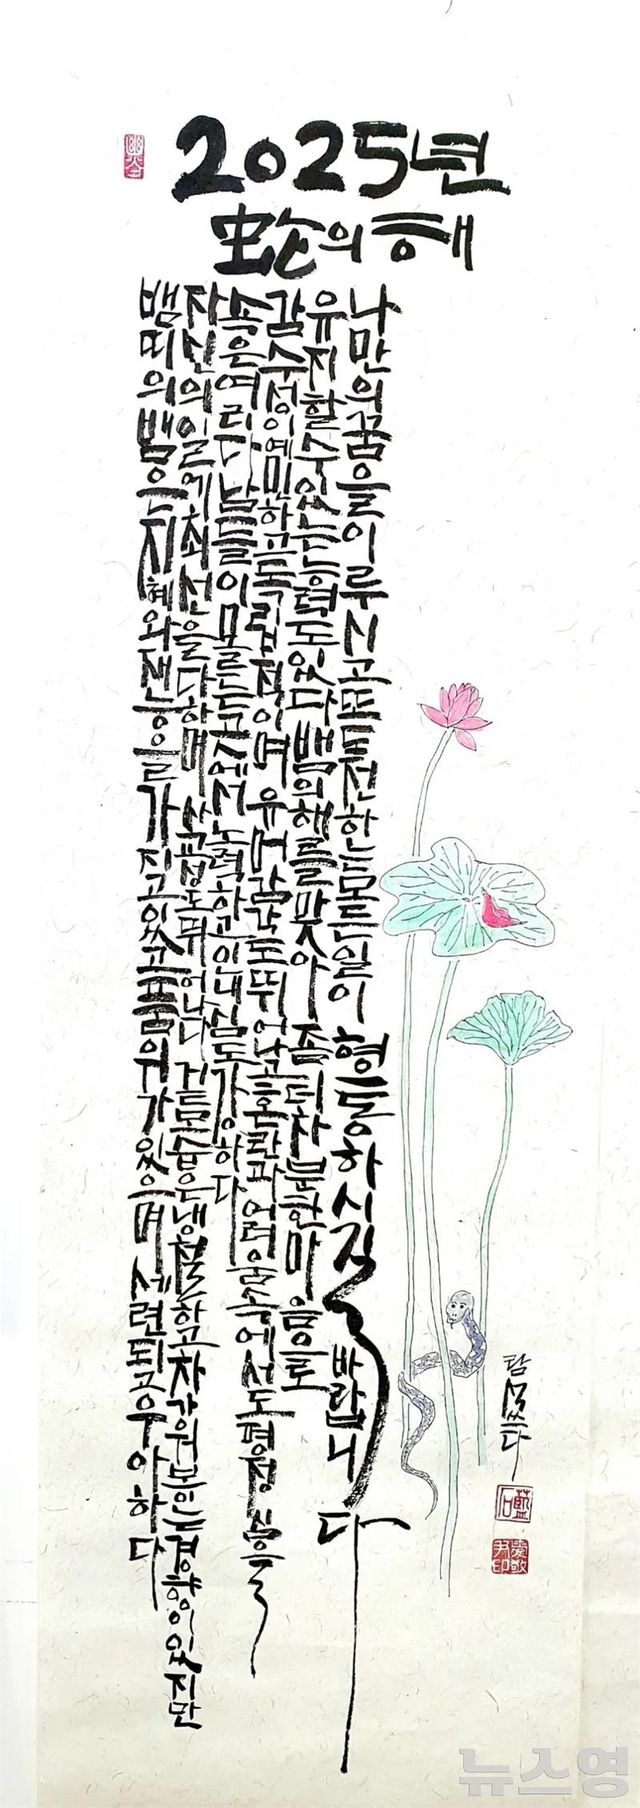 2025년
蛇의 해
뱀띠의 뱀은 지혜와 재능을 가지고 있고 품위가 있으며 세련되고 우아하다
자신의 일에 최선을 다하며 사교성도 뛰어나다 겉모습은 냉철하고 차가워 보이는 경향이 있지만
속은 여리다 남들이 모르는 곳에서 노력하고 인내심도 강하다
감수성이 예민하고 독립적이며 유머감각도 뛰어나고 혼란과 어려움 속에서도 평정심을
유지할 수 있는 능력도 있다 뱀의 해를 맞아 좀 더 차분한 마음으로
나만의 꿈을 이루시고 또 도전하는 모든 일이 형통하시길 바랍니다
람석 쓰다
藍石
뉴스영